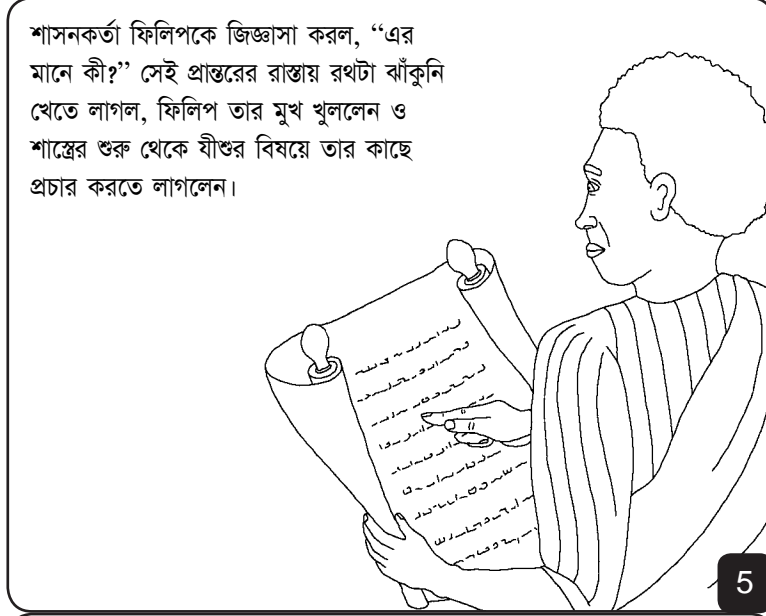 শাসনকর্তা ফিলিপকে জিজ্ঞাসা করল, “এর
মানে কী?” সেই প্রান্তরের রাস্তায় রথটা ঝাঁকুনি
খেতে লাগল, ফিলিপ তার মুখ খুললেন ও
শাস্ত্রের শুরু থেকে যীশুর বিষয়ে তার কাছে
প্রচার করতে লাগলেন।
5